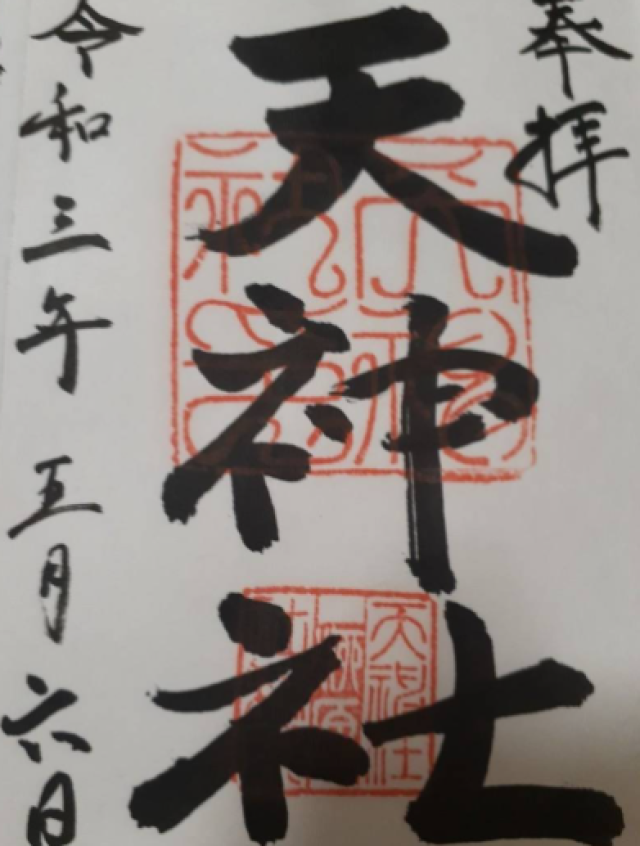 奉拝
天神社
令和三年 五月六日